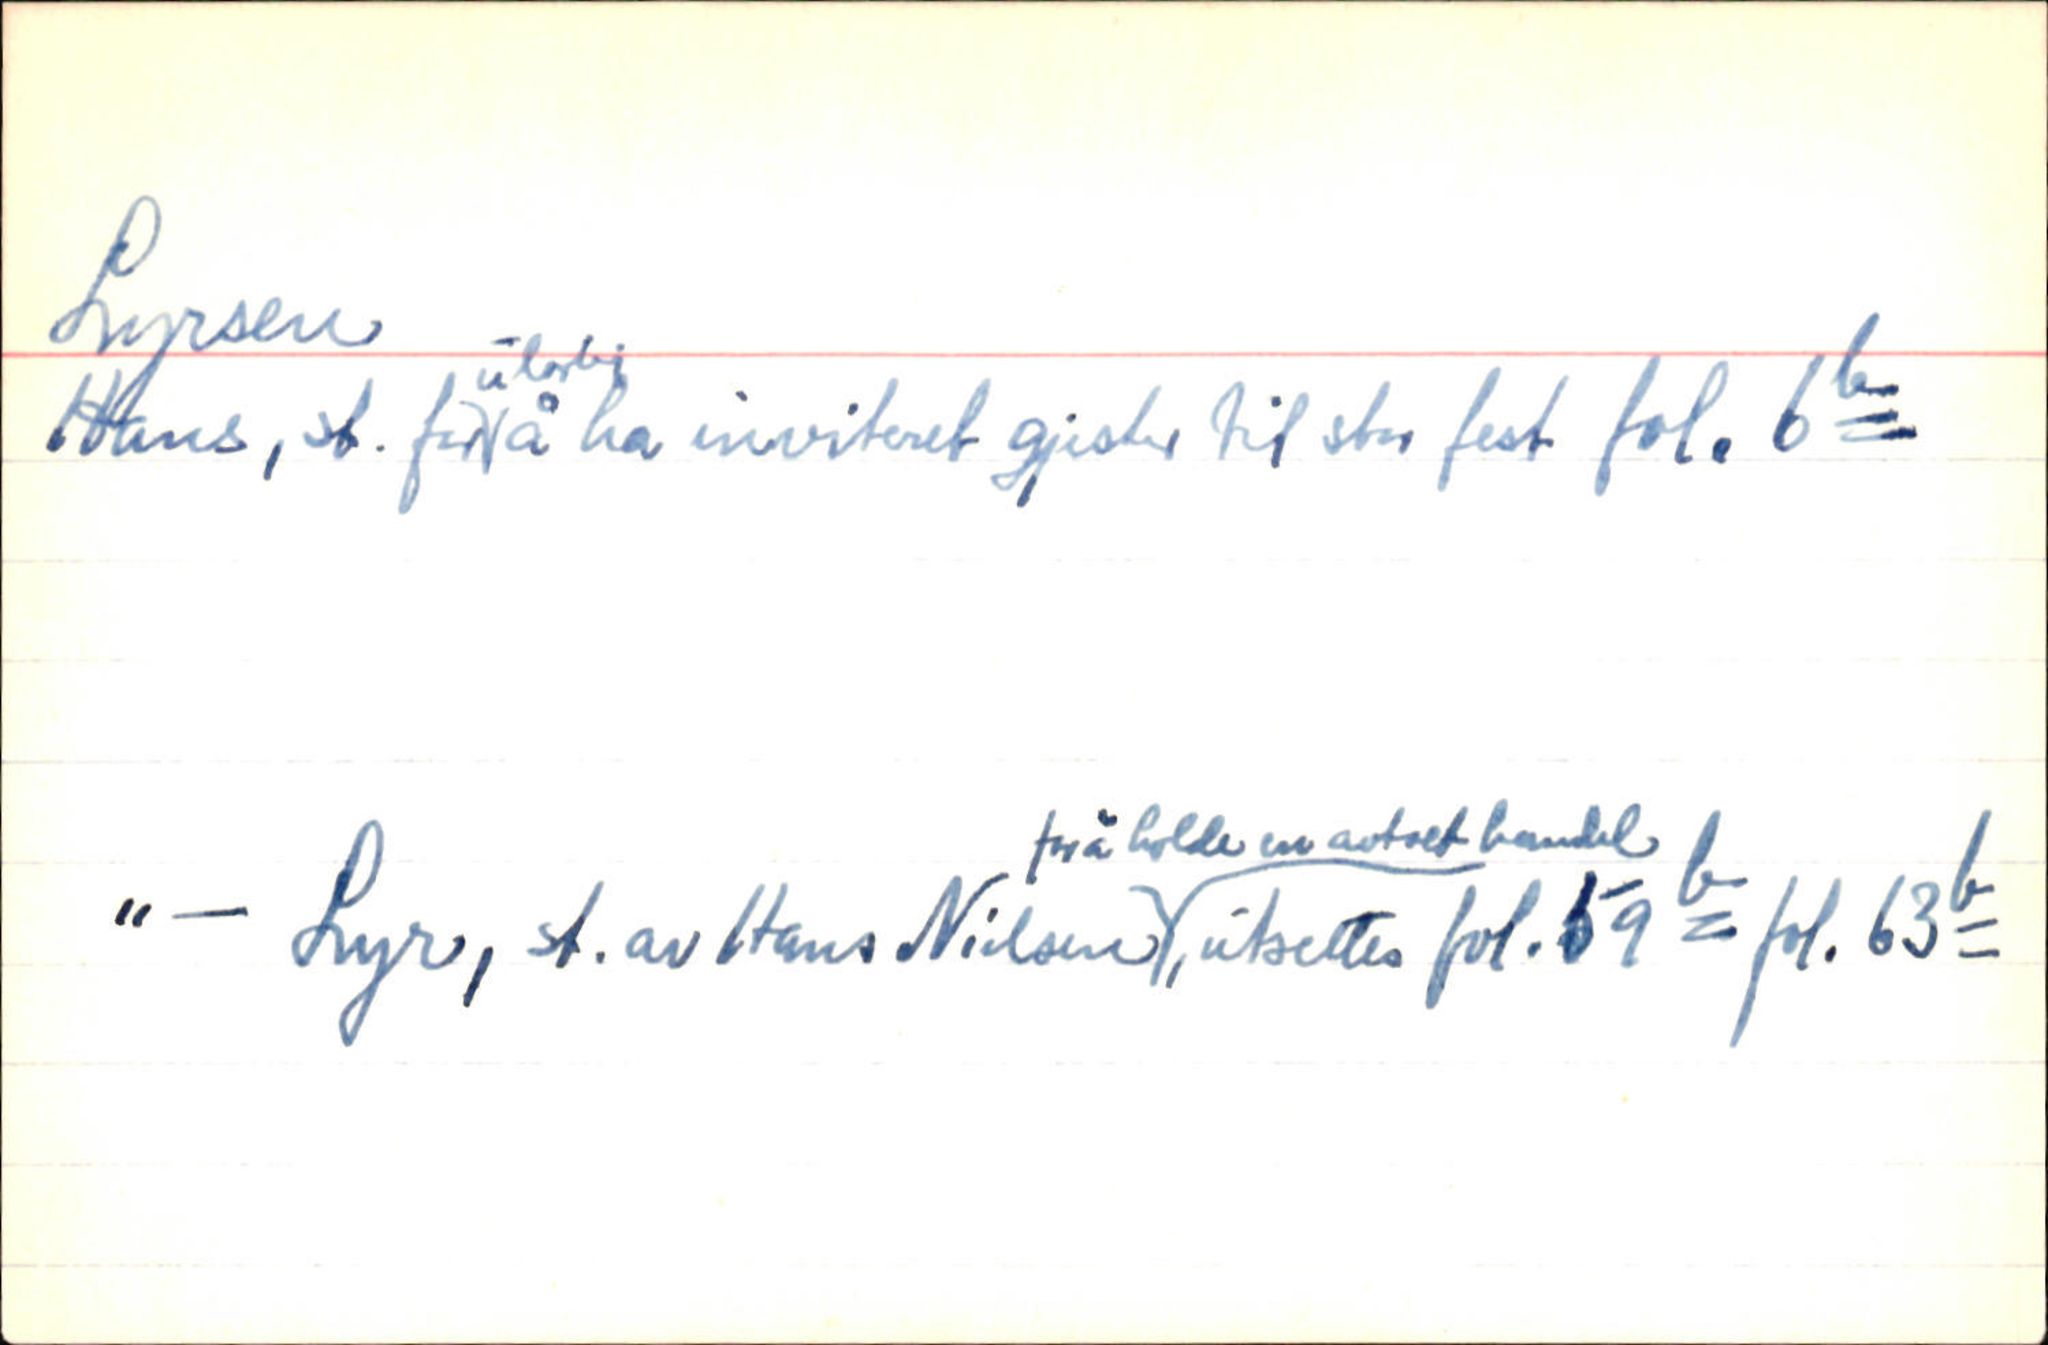 Lyrsen
ulovlig
Hans, st. for å ha inviteret gjester til stor fest fol. 6b
for å holde en avtret handel
"— Lyr, st. av Hans Nielsen, utsettes fol. 59b fol. 63b